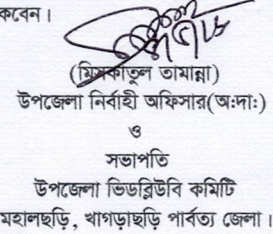 কবেন।
(মিসকাতুল তামান্না)
উপজেলা নির্বাহী অফিসার(অ:দা:)
ও
সভাপতি
উপজেলা ভিডব্লিউবি কমিটি
মহালছড়ি, খাগড়াছড়ি পার্বত্য জেলা।